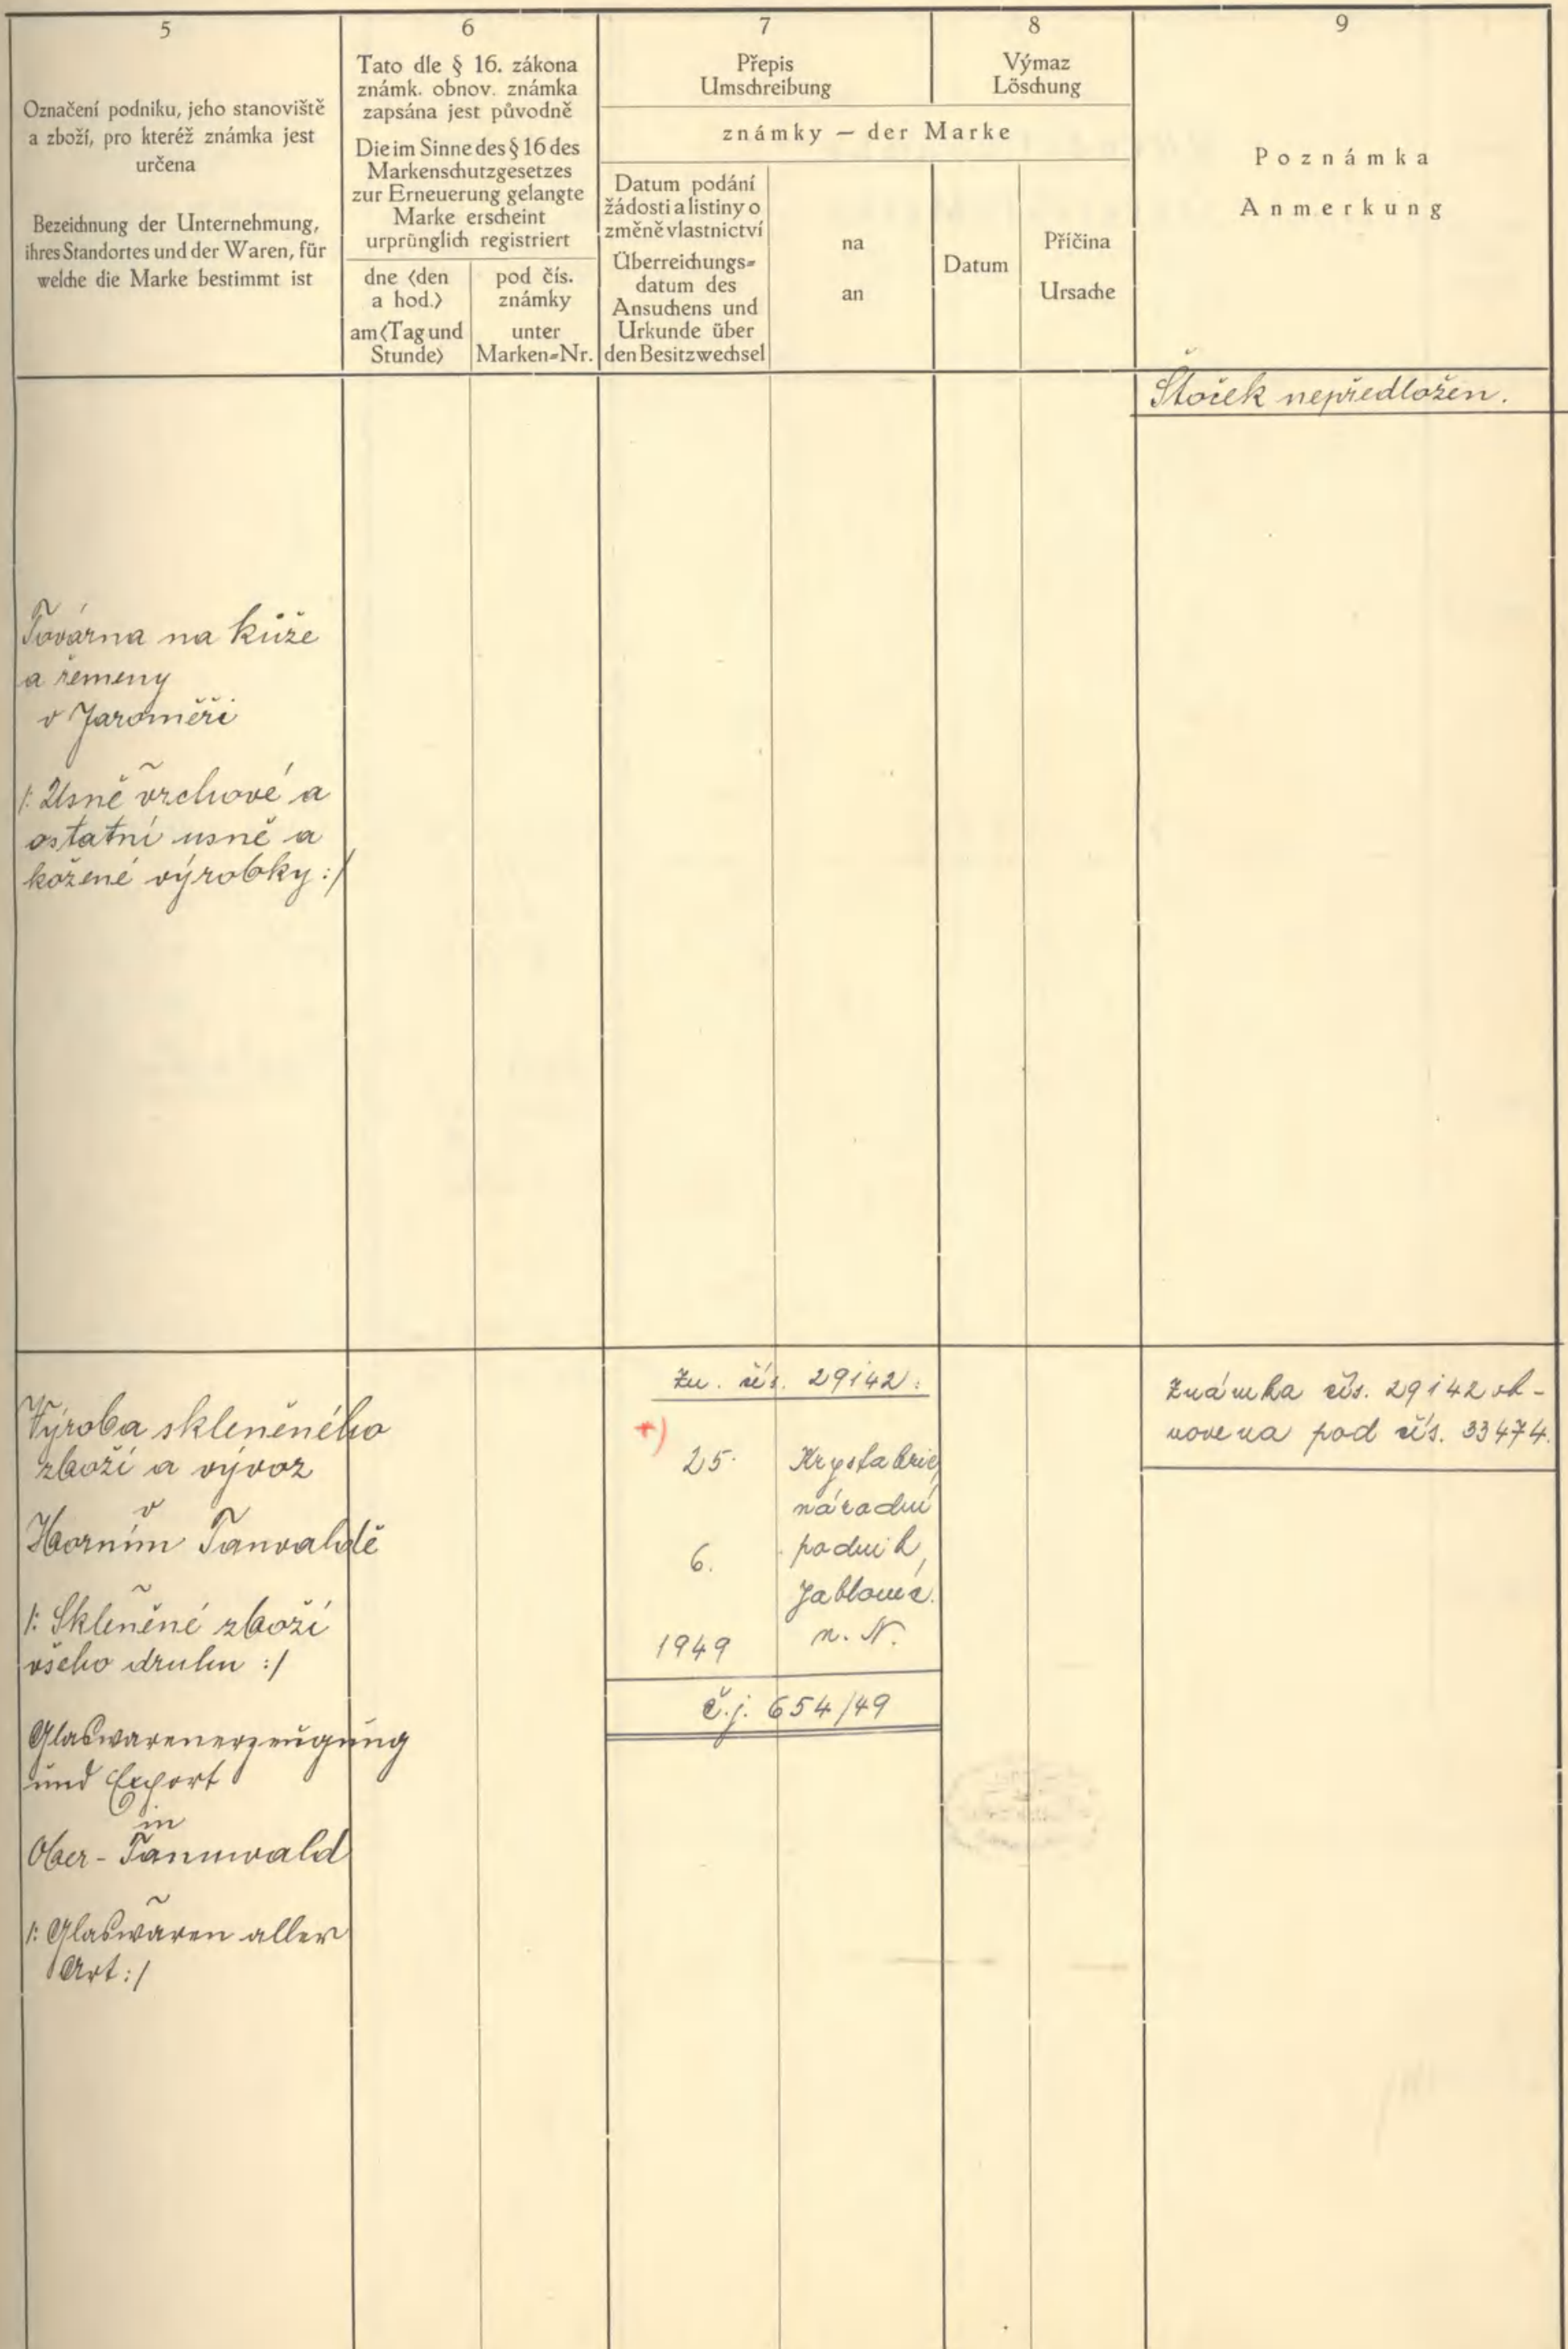 5
Označení podniku, jeho stanoviště
a zboží, pro kteréž známka jest
určena
Bezeichnung der Unternehmung,
ihres Standortes und der Waren, für
welche die Marke bestimmt ist
6
Tato dle § 16. zákona
známk. obnov. známka
zapsána jest původně
Die im Sinne des § 16 des
Markenschutzgesetzes
zur Erneuerung gelangte
Marke erscheint
urprünglich registriert
dne (den
a hod.)
am (Tag und
Stunde)
pod čís.
známky
unter
Marken=Nr.
7
Přepis
Umschreibung
8
Výmaz
Löschung
známky — der Marke
Datum podání
žádosti a listiny o
změně vlastnictví
Überreichungs=
datum des
Ansuchens und
Urkunde über
den Besitzwechsel
na
an
Datum
Příčina
Ursache
9
Poznámka
Anmerkung
Štoček nepředložen.
Továrna na kůže
a řemeny
v Jaroměři
/: Usně vrchové a
ostatní usně a
kožené výrobky :/
Výroba skleněného
zboží a vývoz
v
Horním Tanvaldě
/: Skleněné zboží
všeho druhu :/
Glaswarenerzeugung
und Export
in
Ober-Tannwald
/: Glaswaren aller
Art :/
Zn. čís. 29142:
+)
25.
6.
1949
Krystalerie,
národní
podnik,
Jablonec
n. N.
č.j. 654/49
Známka čís. 29142 ob-
novena pod čís. 33474.